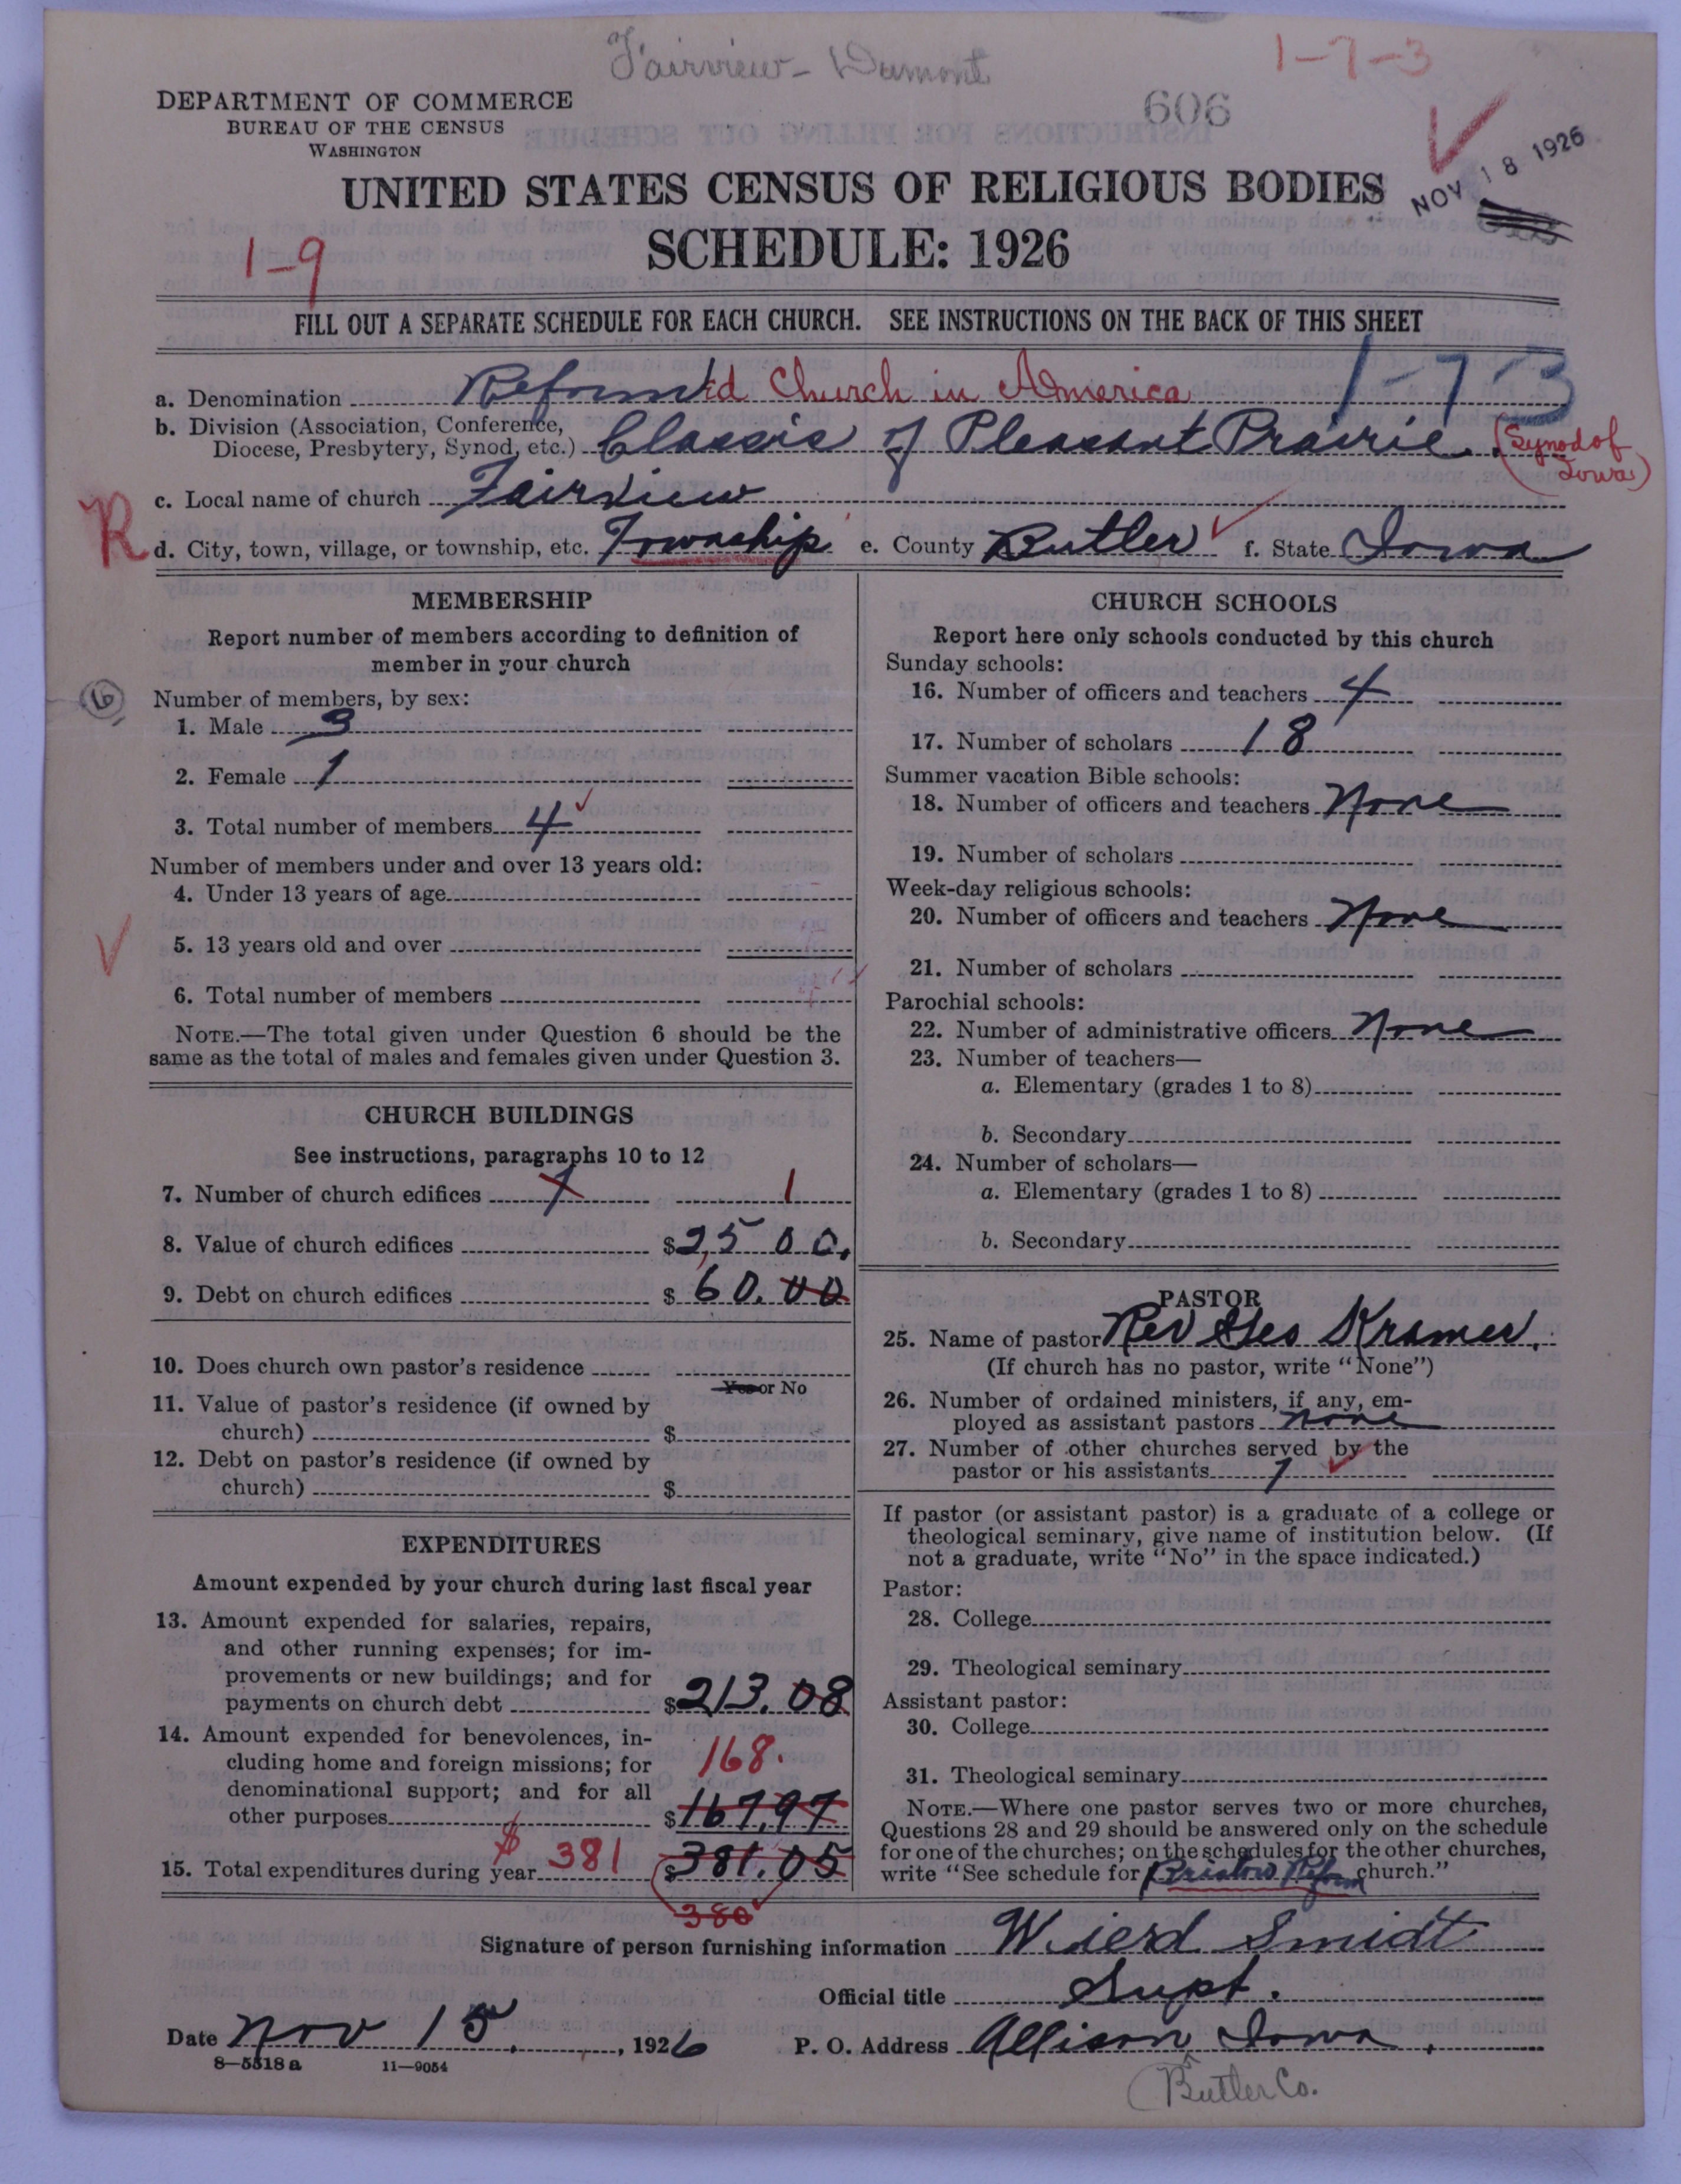 Fairview - Dumont
1-7-3
DEPARTMENT OF COMMERCE
BUREAU OF THE CENSUS
WASHINGTON
606
NOV 18 1926
UNITED STATES CENSUS OF RELIGIOUS BODIES
SCHEDULE: 1926
1-9
FILL OUT A SEPARATE SCHEDULE FOR EACH CHURCH. SEE INSTRUCTIONS ON THE BACK OF THIS SHEET
1-7-3
a. Denomination Reformed Church in America
b. Division (Association, Conference,
Diocese, Presbytery, Synod, etc.) Classis of Pleasant Prairie. (Synod of Iowa)
c. Local name of church Fairview
R
d. City, town, village, or township, etc. Township e. County Butler f. State Iowa
MEMBERSHIP
Report number of members according to definition of
member in your church
(6)
Number of members, by sex:
1. Male 3
2. Female 1
3. Total number of members 4
Number of members under and over 13 years old:
4. Under 13 years of age
5. 13 years old and over
6. Total number of members
NOTE.—The total given under Question 6 should be the
same as the total of males and females given under Question 3.
CHURCH BUILDINGS
See instructions, paragraphs 10 to 12
7. Number of church edifices 1 1
8. Value of church edifices $2,500.
9. Debt on church edifices $ 60.00
10. Does church own pastor's residence
Yes or No
11. Value of pastor's residence (if owned by
church) $
12. Debt on pastor's residence (if owned by
church) $
EXPENDITURES
Amount expended by your church during last fiscal year
13. Amount expended for salaries, repairs,
and other running expenses; for im-
provements or new buildings; and for
payments on church debt $213.08
14. Amount expended for benevolences, in-
cluding home and foreign missions; for 168.
denominational support; and for all
other purposes $167,97
15. Total expenditures during year $ 381 $381.05
380
CHURCH SCHOOLS
Report here only schools conducted by this church
Sunday schools:
16. Number of officers and teachers 4
17. Number of scholars 18
Summer vacation Bible schools:
18. Number of officers and teachers None
19. Number of scholars
Week-day religious schools:
20. Number of officers and teachers None
21. Number of scholars
Parochial schools:
22. Number of administrative officers None
23. Number of teachers—
a. Elementary (grades 1 to 8)
b. Secondary
24. Number of scholars—
a. Elementary (grades 1 to 8)
b. Secondary
PASTOR
25. Name of pastor Rev Geo Kramer.
(If church has no pastor, write "None")
26. Number of ordained ministers, if any, em-
ployed as assistant pastors none
27. Number of other churches served by the
pastor or his assistants 1
If pastor (or assistant pastor) is a graduate of a college or
theological seminary, give name of institution below. (If
not a graduate, write "No" in the space indicated.)
Pastor:
28. College
29. Theological seminary
Assistant pastor:
30. College
31. Theological seminary
NOTE.—Where one pastor serves two or more churches,
Questions 28 and 29 should be answered only on the schedule
for one of the churches; on the schedules for the other churches,
write "See schedule for Bristow Reform church."
Signature of person furnishing information Wierd Smidt
Official title Supt.
Date Nov 15, 1926 P. O. Address Allison, Iowa.
8—5318 a 11—9054
(Butler Co.